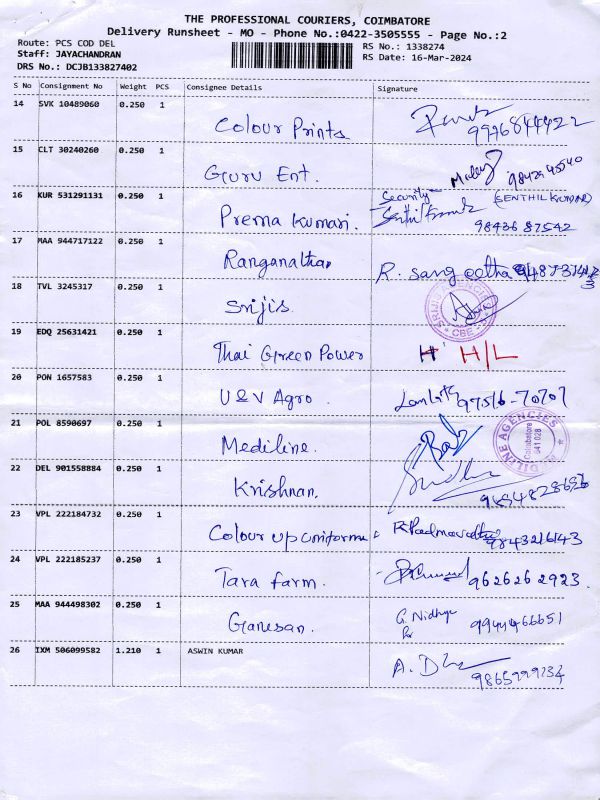 THE PROFESSIONAL COURIERS, COIMBATORE
Delivery Runsheet - MO - Phone No.:0422-3505555 - Page No.:2
Route: PCS COD DEL
RS No.: 1338274
Staff: JAYACHANDRAN
RS Date: 16-Mar-2024
DRS No.: DCJB133827402
S No Consignment No Weight PCS Consignee Details Signature
14 SVK 10489060 0.250 1
Colour Prints 9976844422
15 CLT 30240260 0.250 1
Guru Ent.
16 KUR 531291131 0.250 1 Security (SENTHIL KUMAR)
Prema Kumari. 98436 87542
17 MAA 944717122 0.250 1
Ranganathan R. sangeetha
18 TVL 3245317 0.250 1
Srijis CBE
19 EDQ 25631421 0.250 1
Thai Green Power H H/L
20 PON 1657583 0.250 1
U & V Agro. 97516-70707
21 POL 8590697 0.250 1
Mediline. AGENCIES Coimbatore 641 028
22 DEL 901558884 0.250 1
Krishnan.
23 VPL 222184732 0.250 1
Colour up uniforms
24 VPL 222185237 0.250 1
Tara farm. 962626 2923
25 MAA 944498302 0.250 1 G. Nidhya
Ganesan. 9944466651
26 IXM 506099582 1.210 1 ASWIN KUMAR